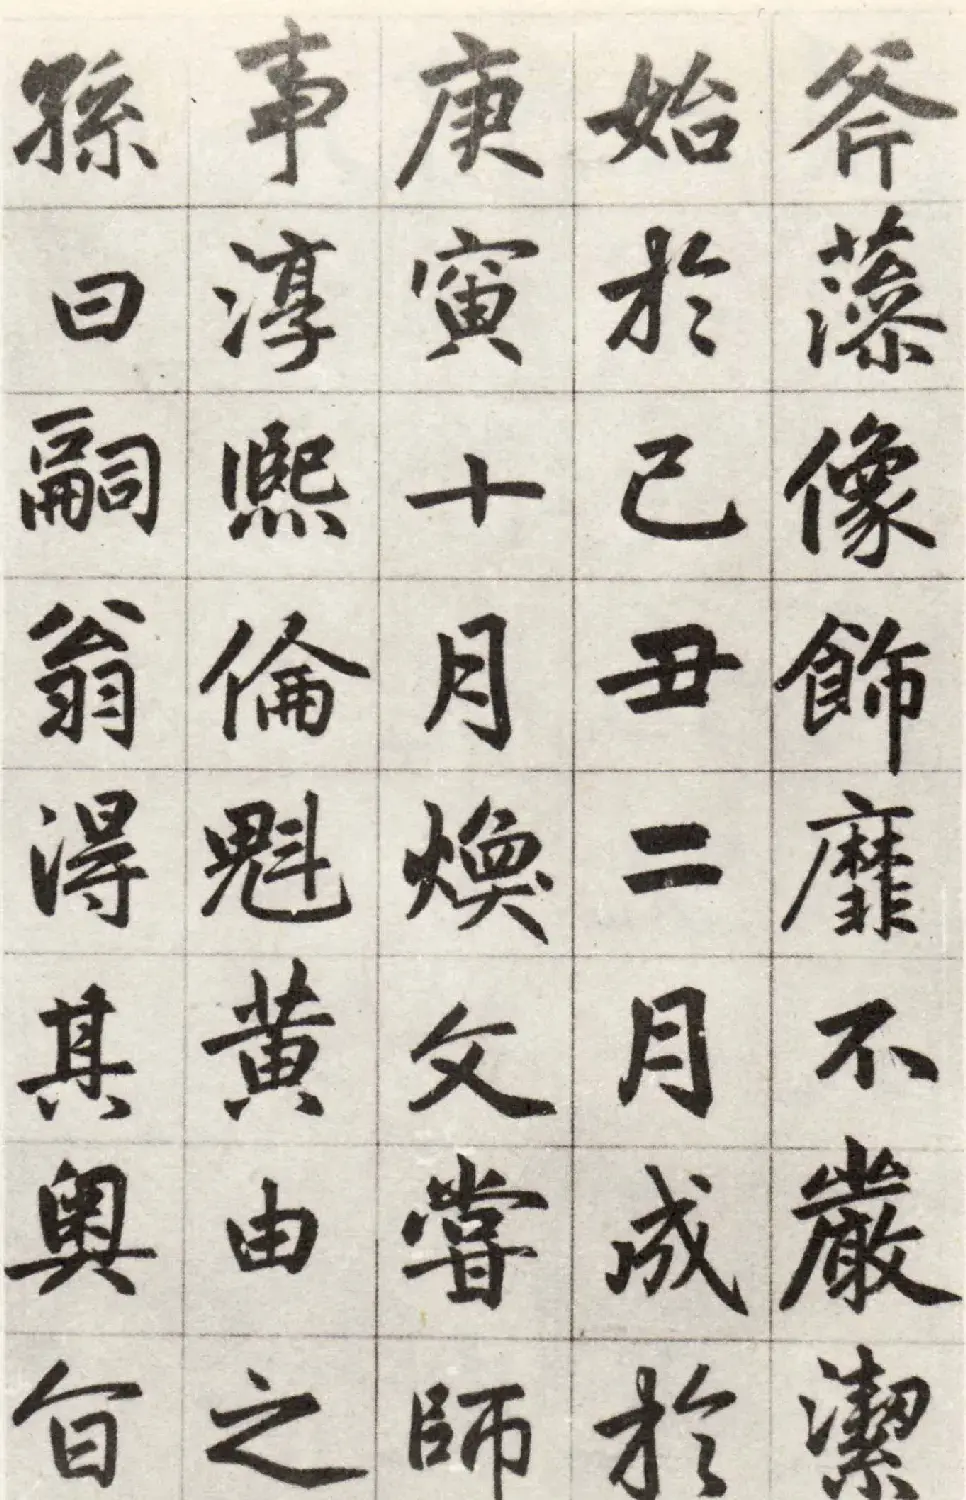 斧藻像飾靡不嚴潔
始於己丑二月成於
庚寅十月煥文嘗師
事淳熙倫魁黃由之
孫曰嗣翁得其奧旨